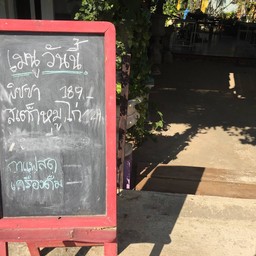 เมนูวันนี้
พิซซา 169.-
สเต็กหมูไก่
กาแฟสด
เครื่องดื่ม